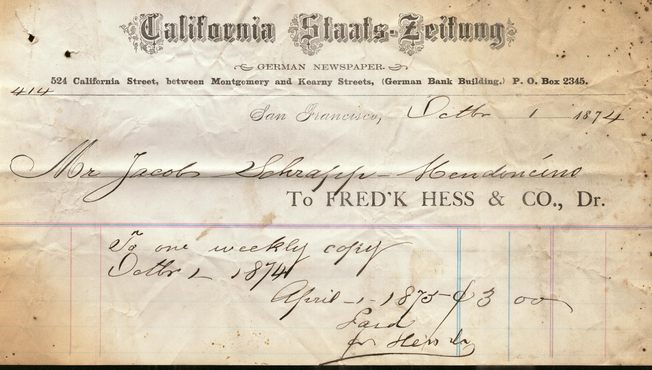 California Staats-Zeitung
GERMAN NEWSPAPER.
524 California Street, between Montgomery and Kearny Streets, (German Bank Building.) P. O. Box 2345.
414
San Francisco, Octbr 1 1874
Mr Jacob Schrapp - Mendocino
To FRED'K HESS & CO., Dr.
To one weekly copy
Octbr 1 1874
April - 1 - 1875 $ 3 00
Paid